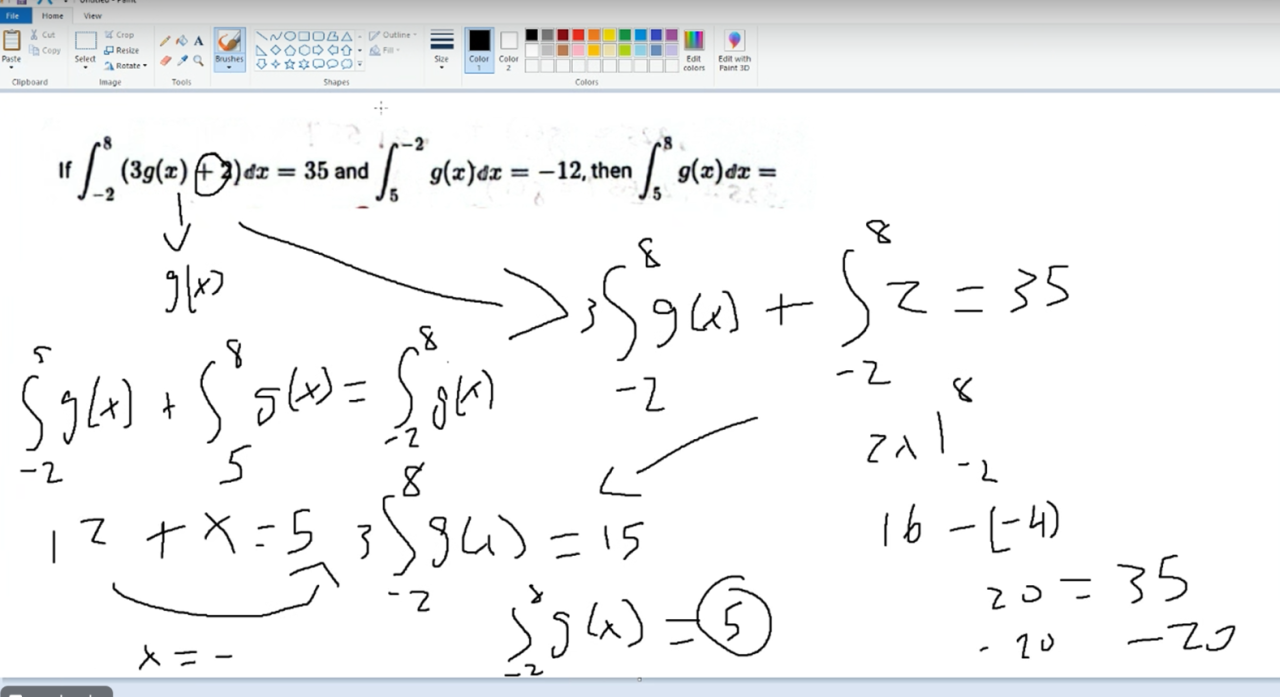 File Home View
Cut
Copy
Paste
Clipboard
Select
Crop
Resize
Rotate
Image
A
Tools
Brushes
Outline
Fill
Shapes
Size
Color 1
Color 2
Edit colors
Edit with Paint 3D
Colors
If ∫_{-2}^{8} (3g(x) + 2)dx = 35 and ∫_{5}^{-2} g(x)dx = -12, then ∫_{5}^{8} g(x)dx =
g(x)
3∫_{-2}^{8} g(x) + ∫_{-2}^{8} 2 = 35
∫_{-2}^{5} g(x) + ∫_{5}^{8} g(x) = ∫_{-2}^{8} g(x)
2x |_{-2}^{8}
12 + x = 5
3∫_{-2}^{8} g(x) = 15
16 - (-4)
20 = 35
-20 -20
∫_{-2}^{8} g(x) = 5
x = -